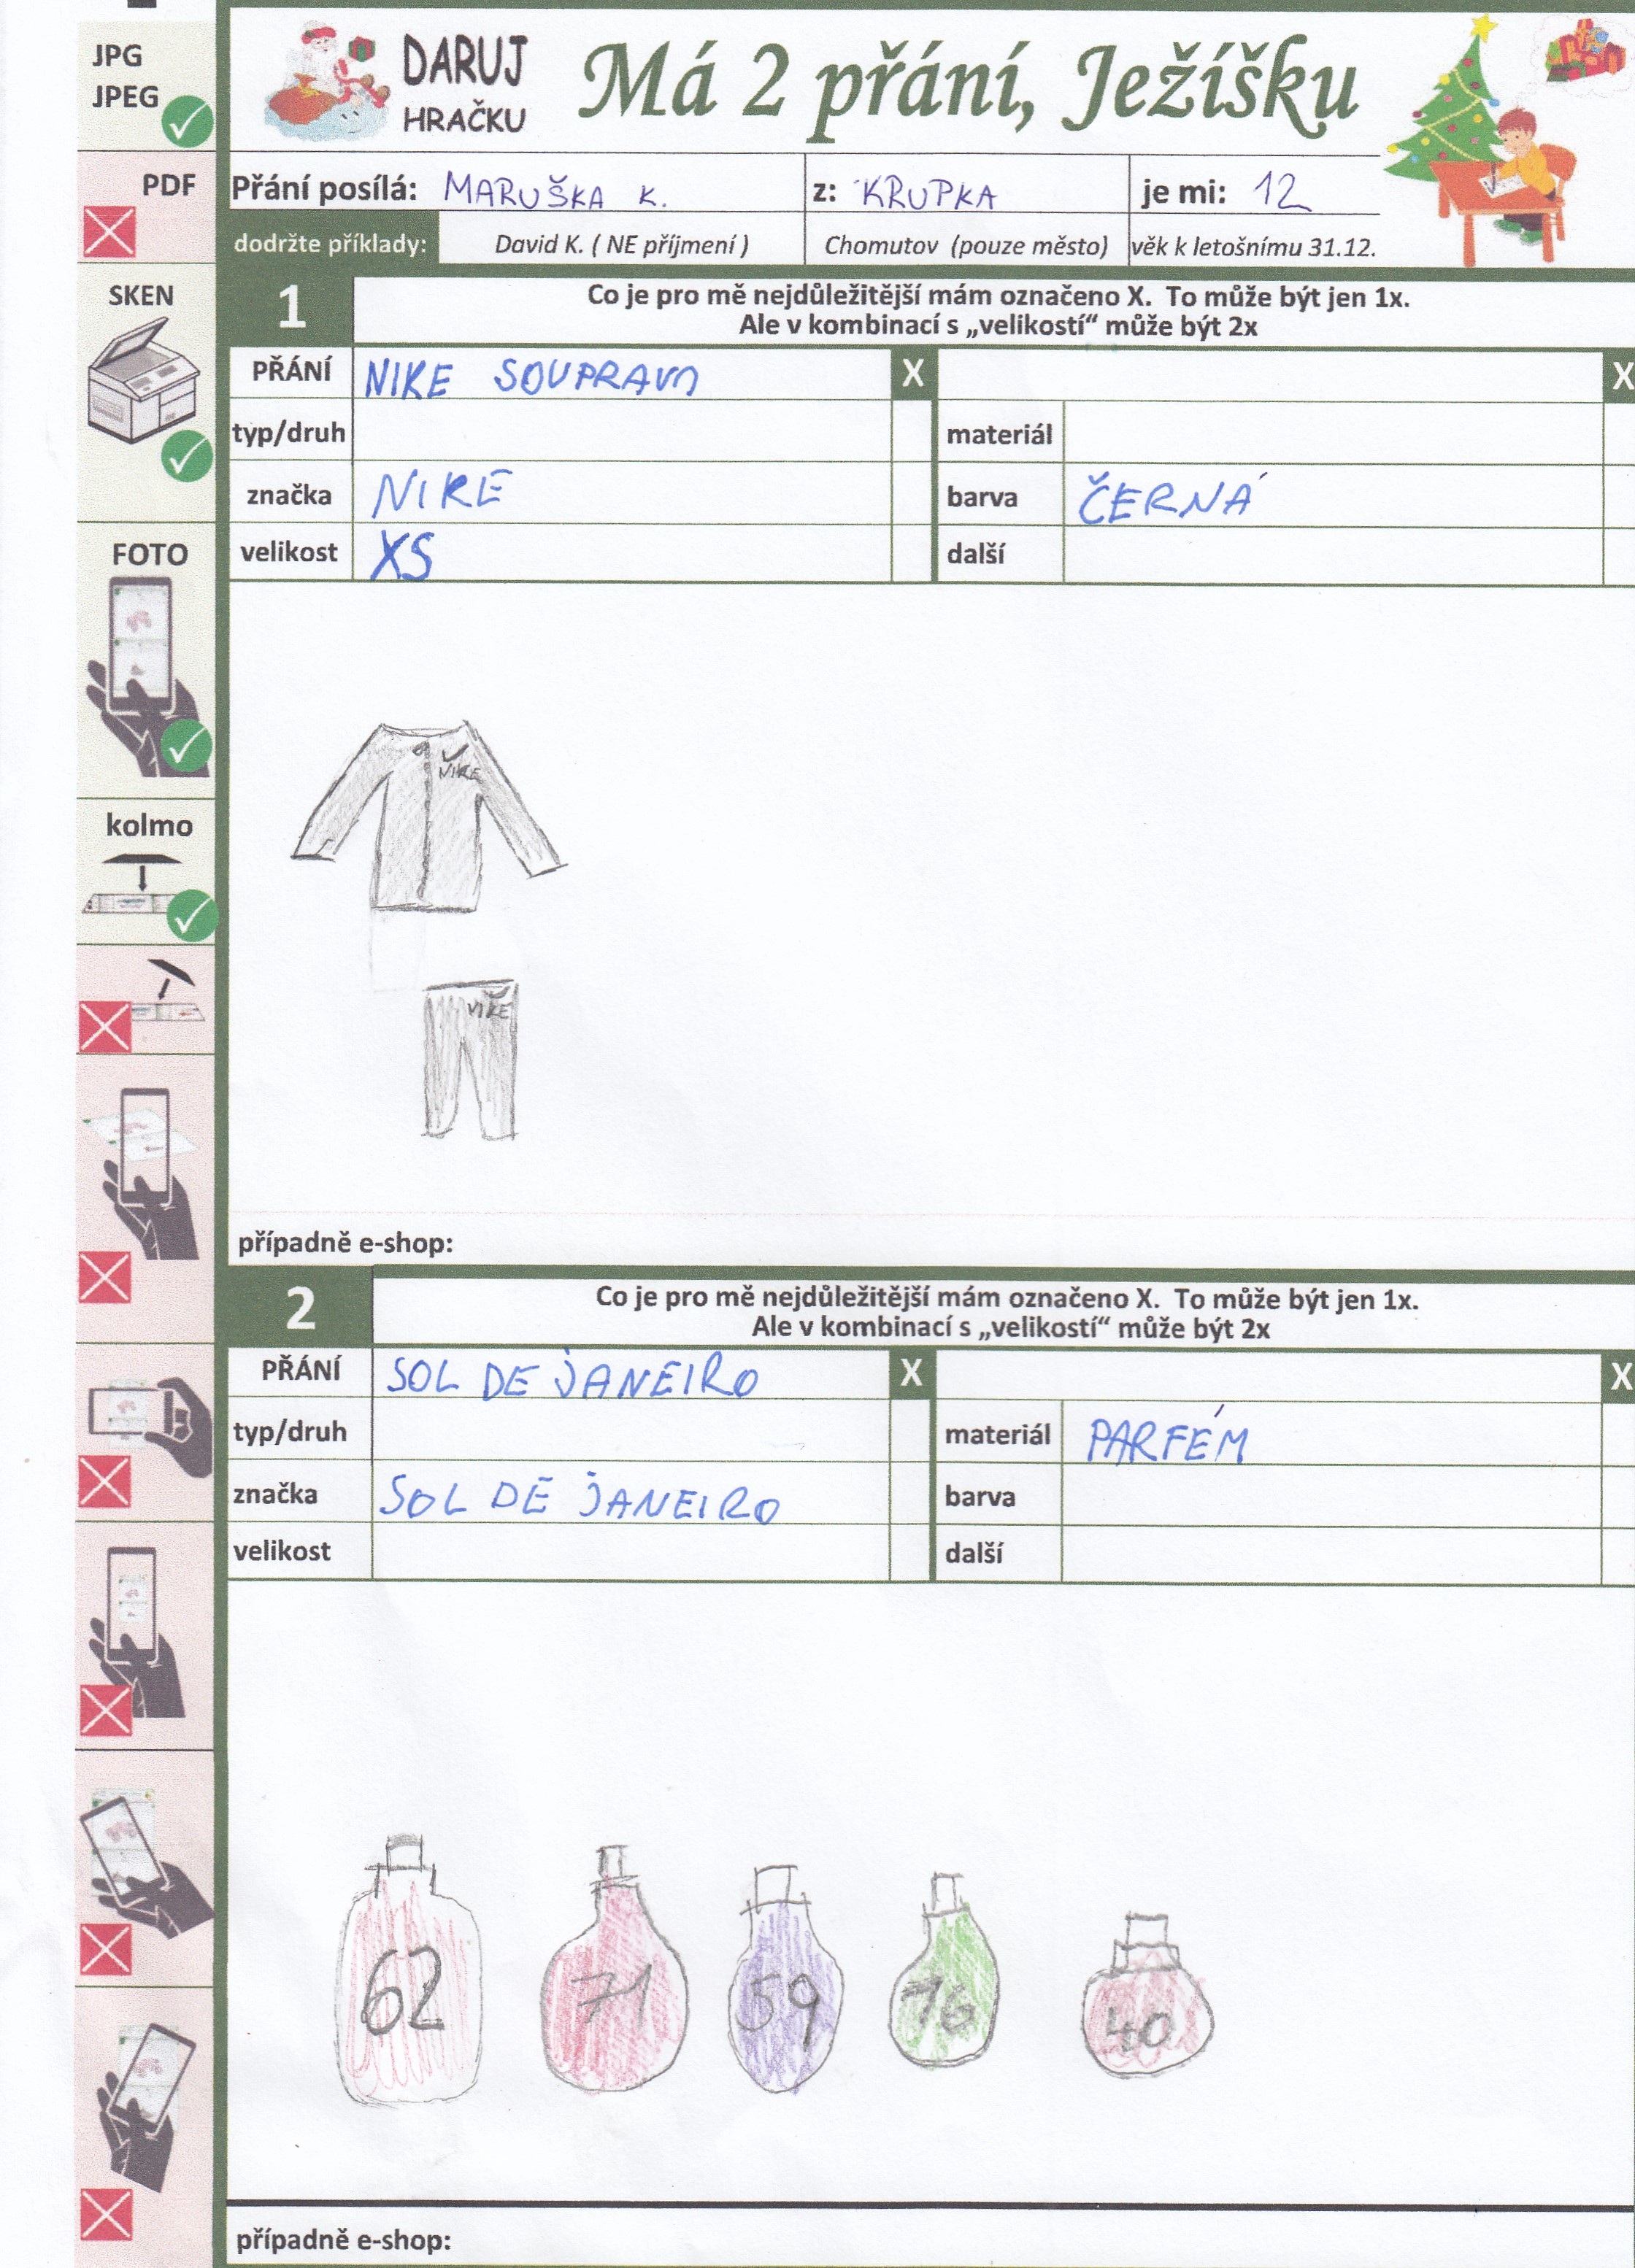 JPG
JPEG
PDF
SKEN
FOTO
kolmo
DARUJ
HRAČKU
Má 2 přání, Ježíšku
Přání posílá: MARUŠKA K. z: KRUPKA je mi: 12
dodržte příklady: David K. ( NE příjmení ) Chomutov (pouze město) věk k letošnímu 31.12.
1 Co je pro mě nejdůležitější mám označeno X. To může být jen 1x.
Ale v kombinací s „velikostí“ může být 2x
PŘÁNÍ NIKE SOUPRAVA X X
typ/druh materiál
značka NIKE barva ČERNÁ
velikost XS další
NIKE
NIKE
případně e-shop:
2 Co je pro mě nejdůležitější mám označeno X. To může být jen 1x.
Ale v kombinací s „velikostí“ může být 2x
PŘÁNÍ SOL DE JANEIRO X X
typ/druh materiál PARFÉM
značka SOL DE JANEIRO barva
velikost další
62 71 59 76 40
případně e-shop: